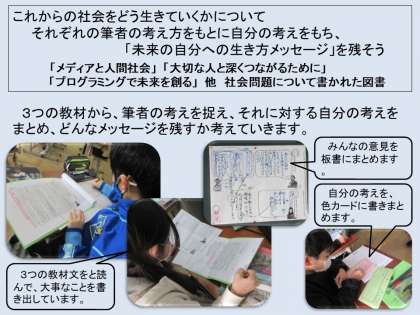 これからの社会をどう生きていくかについて
それぞれの筆者の考え方をもとに自分の考えをもち、
「未来の自分への生き方メッセージ」を残そう
「メディアと人間社会」「大切な人と深くつながるために」
「プログラミングで未来を創る」 他 社会問題について書かれた図書
3つの教材から、筆者の考えを捉え、それに対する自分の考えを
まとめ、どんなメッセージを残すか考えていきます。
みんなの意見を
板書にまとめます
。
自分の考えを、
色カードに書きまと
めます。
3つの教材文をと読
んで、大事なことを書
き出しています。